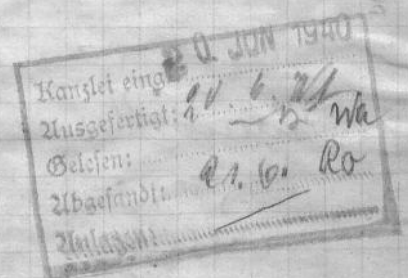 20. JUN 1940
Kanzlei eing
Ausgefertigt: 20. 6. Wa
Gelesen:
Abgesandt: 21. 6. Ro
Anlagen: